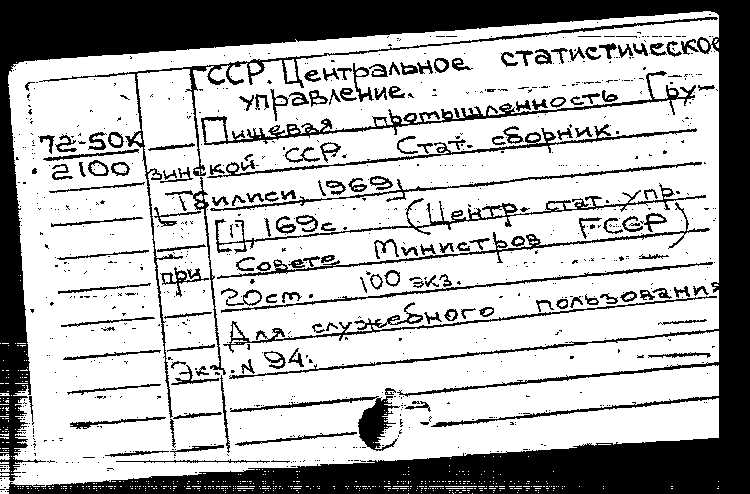 ГССР. Центральное статистическое
управление.
Пищевая промышленность Гру-
72-50к
2100
зинской ССР. Стат. сборник.
Тбилиси, 1969]
[1], 169с. (Центр. стат. упр.
при Совете Министров ГССР)
20см. 100 экз.
Для служебного пользования
Экз. N 94.